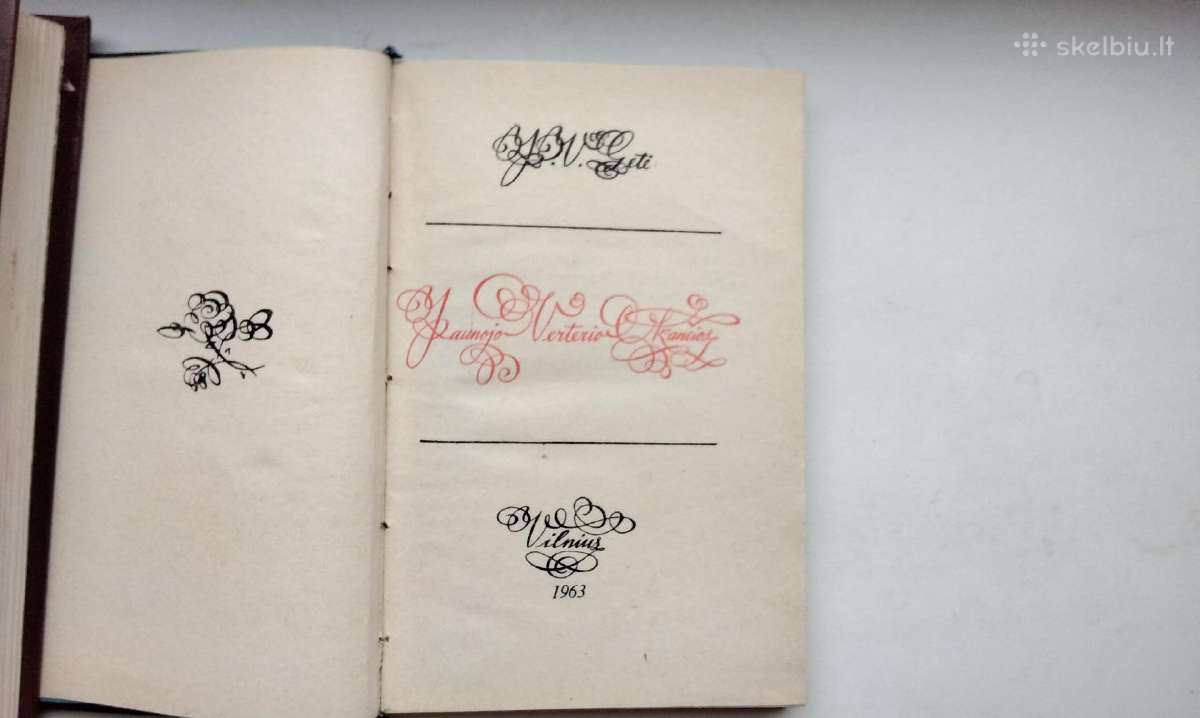 skelbiu.lt
J.V. Gėtė
Jaunojo Verterio Kančios
Vilnius
1963